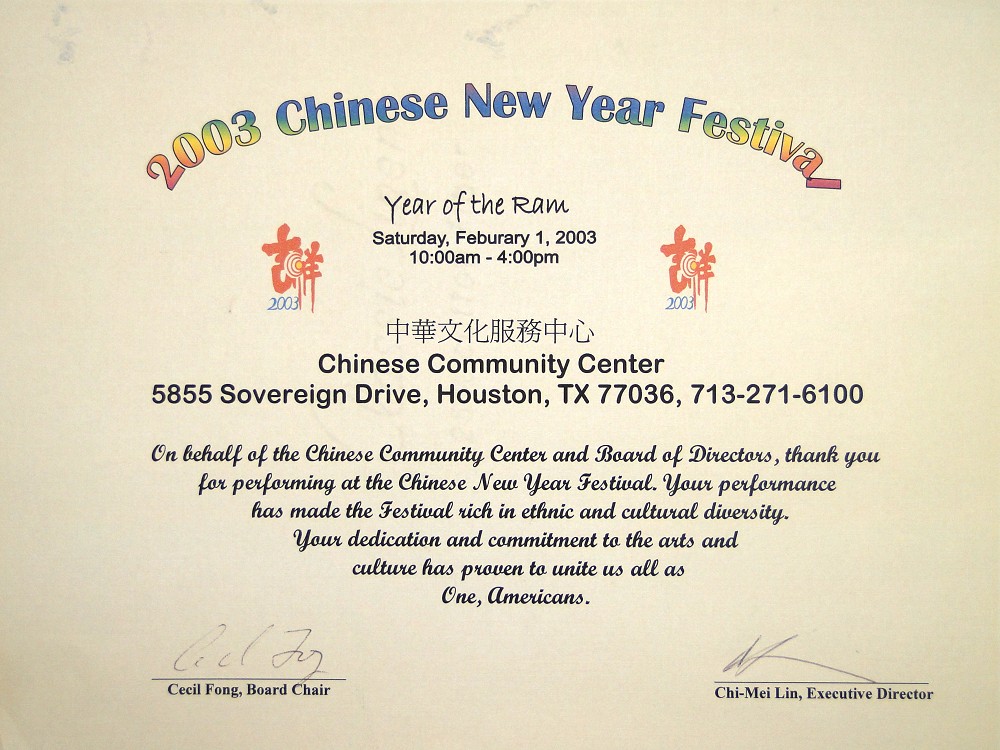 2003 Chinese New Year Festival
Year of the Ram
Saturday, Feburary 1, 2003
10:00am - 4:00pm
吉祥
2003
吉祥
2003
中華文化服務中心
Chinese Community Center
5855 Sovereign Drive, Houston, TX 77036, 713-271-6100
On behalf of the Chinese Community Center and Board of Directors, thank you
for performing at the Chinese New Year Festival. Your performance
has made the Festival rich in ethnic and cultural diversity.
Your dedication and commitment to the arts and
culture has proven to unite us all as
One, Americans.
Cecil Fong
Cecil Fong, Board Chair
Chi-Mei Lin, Executive Director